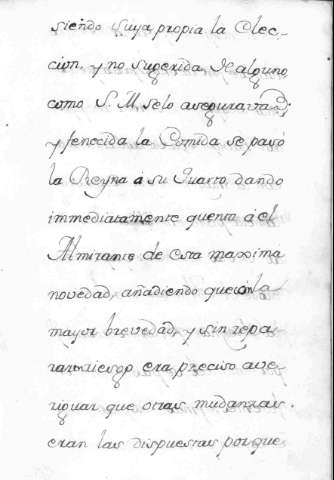 siendo suya propia la Elec-
cion, y no sugerida de alguno,
como S. M. se lo aseguraria;
y fenecida la Comida se pasó
la Reyna á su Quarto, dando
immediatamente quenta á el
Almirante de esta maxima
novedad, añadiendo que con la
mayor brevedad, y sin repa-
rar en riesgo era preciso ave-
riguar que otras mudanzas
eran las dispuestas porque